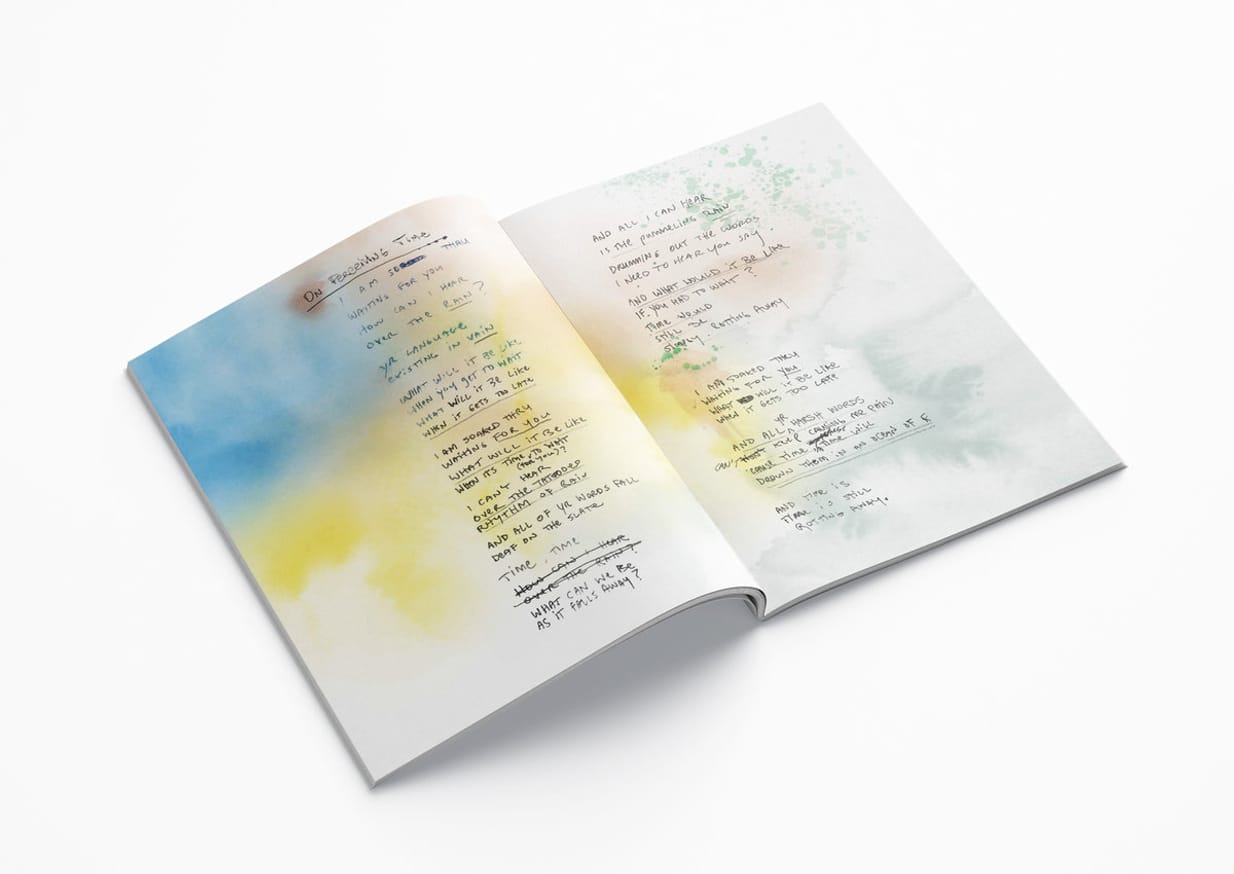 ON PERCEIVING TIME
I AM SO THRU
WAITING FOR YOU
HOW CAN I HEAR
OVER THE RAIN?
YR LANGUAGE
EXISTING IN VAIN
WHAT WILL IT BE LIKE
WHEN YOU GET TO WAIT
WHAT WILL IT BE LIKE
WHEN IT GETS TOO LATE
I AM SOAKED THRU
WAITING FOR YOU
WHAT WILL IT BE LIKE
WHEN ITS TIME TO WAIT
(FOR YOU)?
I CAN'T HEAR
OVER THE TATOOED
RHYTHM OF RAIN
AND ALL OF YR WORDS FALL
DEAF ON THE SLATE
TIME, TIME
HOW CAN I HEAR
OVER THE RAIN?
WHAT CAN WE BE
AS IT FALLS AWAY?
AND ALL I CAN HEAR
IS THE PUMMELING RAIN
DRUMMING OUT THE WORDS
I NEED TO HEAR YOU SAY.
AND WHAT WOULD IT BE LIKE
IF YOU HAD TO WAIT?
TIME WOULD
STILL BE
SIMPLY ROTTING AWAY
I AM SOAKED THRU
WAITING FOR YOU
WHAT WILL IT BE LIKE
WHEN IT GETS TOO LATE
YR
AND ALL HARSH WORDS
KEEP CAUSING ME PAIN
'CAUSE TIME TIME WILL
DROWN THEM IN AN OCEAN OF R
AND TIME IS
TIME IS STILL
ROTTING AWAY.